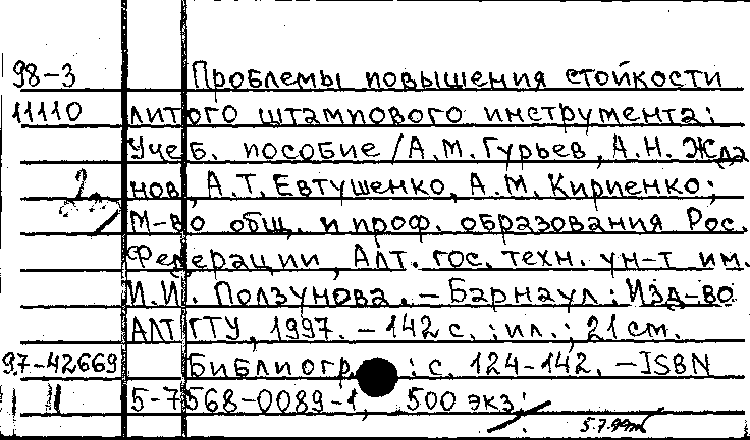 98-3 Проблемы повышения стойкости
11110 литого штампового инструмента:
Учеб. пособие / А.М. Гурьев, А.Н. Жда
нов, А.Т. Евтушенко, А.М. Кириенко;
М-во общ. и проф. образования Рос.
Федерации, Алт. гос. техн. ун-т им.
И.И. Ползунова. – Барнаул: Изд-во
АлтГТУ, 1997. – 142 с. : ил.; 21 см.
97-42669 Библиогр. : с. 124-142. – ISBN
5-7568-0089-1, 500 экз.